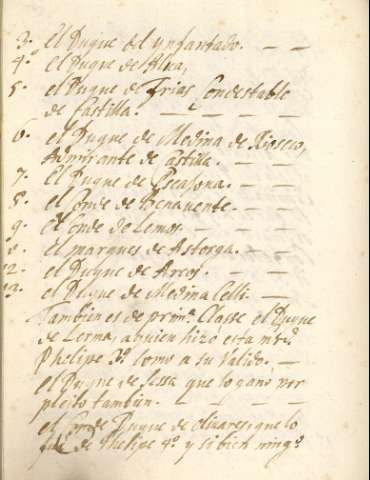 3. el Duque del ynfantado. — —
4.º el Duque de Alua,
5. el Duque de Frias Condestable
de Castilla. — — — —
6. el Duque de Medina de Rioseco,
Admirante de Castilla. — —
7. el Duque de Escalona. — —
8. el Conde de Benauente. — —
9. el Conde de Lemos. — — —
el marques de Astorga. — —
12. el Duque de Arcos. — — —
13. el Duque de Medina Celli —
Tambien es de prim.ª Classe el Duque
de Lerma, a quien hizo esta mr.d
Phelipe 3.º como a su Valido. —
el Duque de Sessa que lo gano por
pleito tambien. — — — —
el Conde Duque de oliuares, que lo
fue de Phelipe 4.º y si bien ning.º